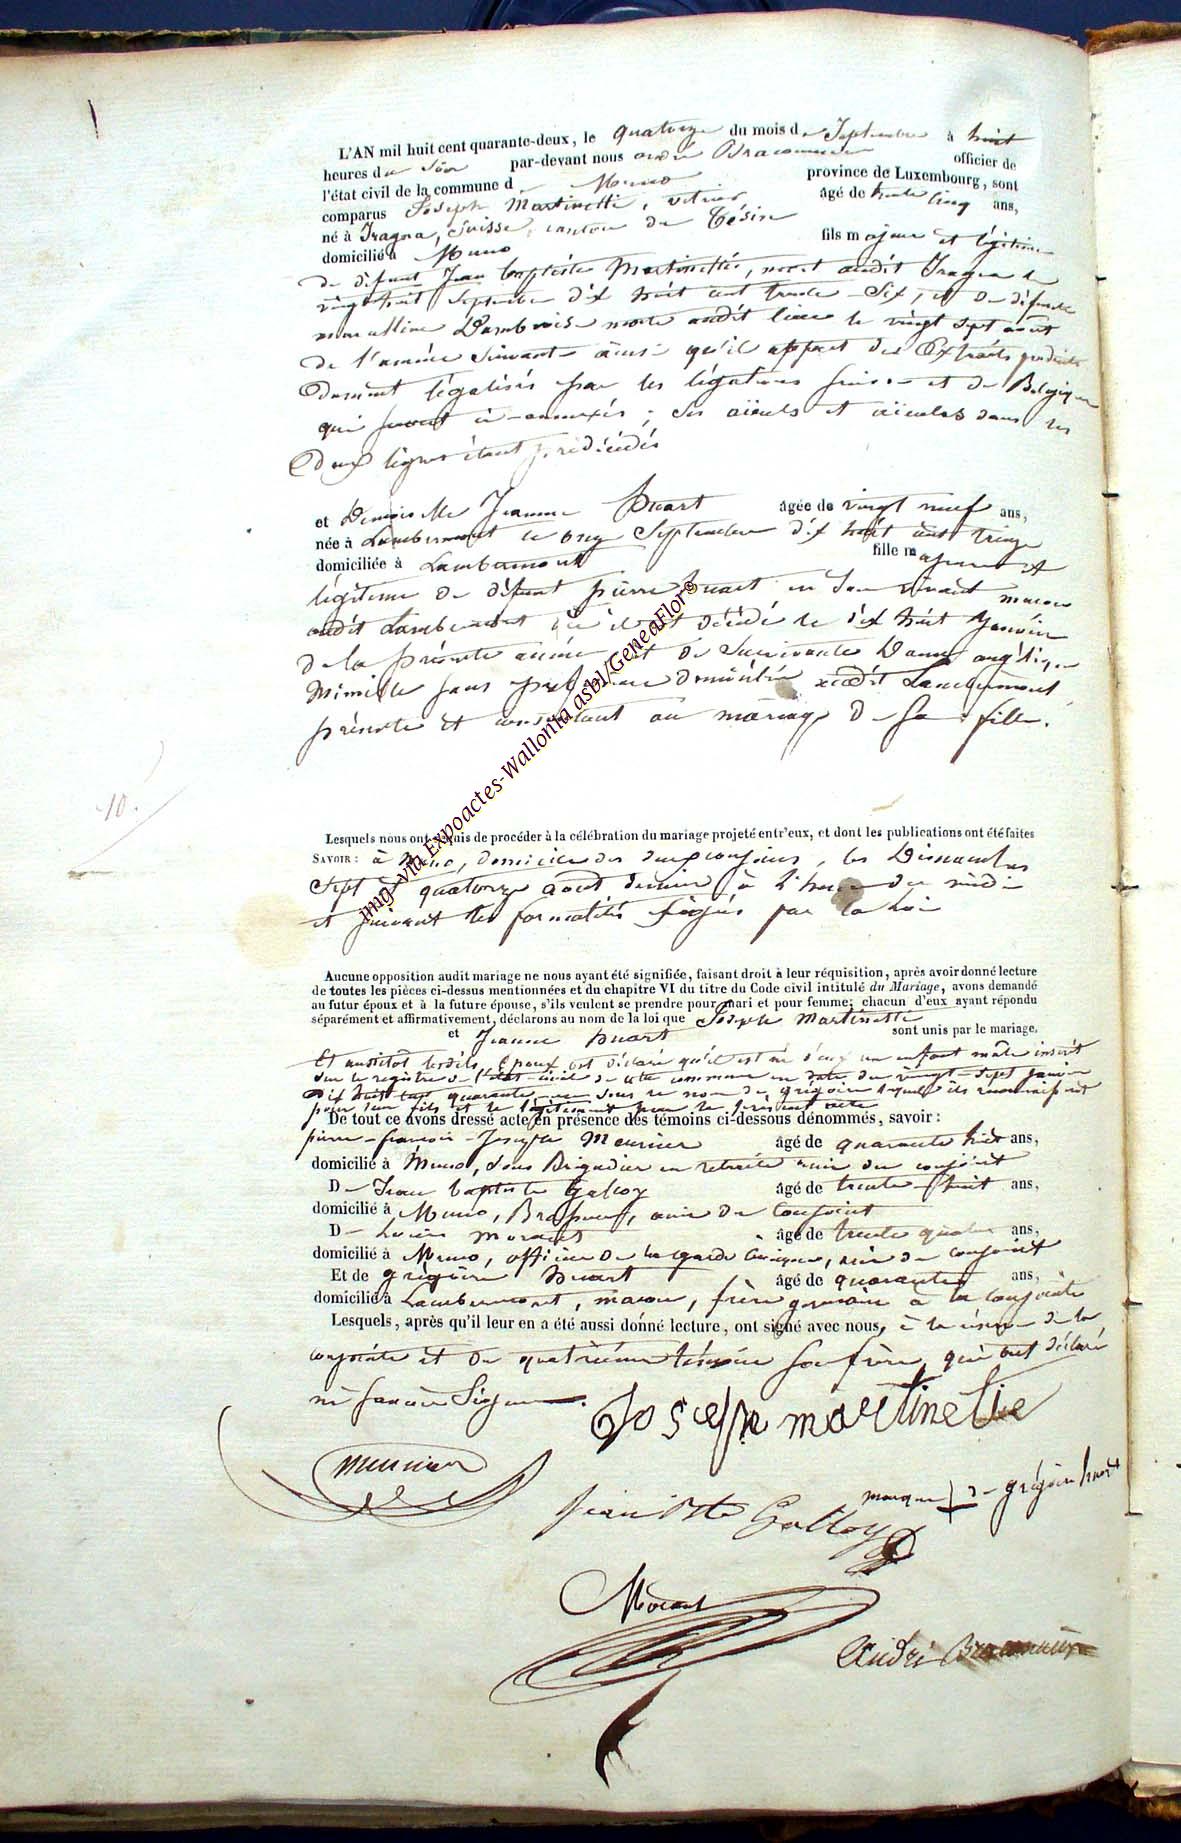 L'AN mil huit cent quarante-deux, le quatorze du mois de Septembre à huit
heures du Soir par-devant nous andré Braconnier officier de
l'état civil de la commune de Muno province de Luxembourg, sont
comparus Joseph Martinetti, vitrier âgé de trente cinq ans,
né à Iragna, Suisse, canton du Tésin
domicilié à Muno fils majeur et légitime
de défunt Jean baptiste Martinetti, mort audit Iragna le
vingt huit Septembre dix huit cent trente-Six, et de défunte
morte audit lieu le vingt sept aout
de l'année Suivante ainsi qu'il appert des Extraits
dument légalisés par les légations suisse et de Belgique
qui sont ci-annexés; Ses aïeuls et aïeules dans les
deux lignes étant prédécédés
et Demoiselle Jeanne Huart âgée de vingt neuf ans,
née à Lambermont le onze Septembre dix huit cent treize
domiciliée à Lambermont fille majeure et
légitime de défunt pierre huart en Son vivant macon
audit Lambermont où il est décédé le dix huit Janvier
de la présente année, et de Survivante Dame angélique
sans profession domiciliée audit Lambermont
présente et consentant au mariage de Sa fille.
10.
Lesquels nous ont requis de procéder à la célébration du mariage projeté entr'eux, et dont les publications ont été faites
SAVOIR: à Muno, domicile des deux conjoints, les Dimanches
Sept et quatorze aout dernier à l'heure de midi
et suivant les formalités éxigées par la Loi
Aucune opposition audit mariage ne nous ayant été signifiée, faisant droit à leur réquisition, après avoir donné lecture
de toutes les pièces ci-dessus mentionnées et du chapitre VI du titre du Code civil intitulé du Mariage, avons demandé
au futur époux et à la future épouse, s'ils veulent se prendre pour mari et pour femme; chacun d'eux ayant répondu
séparément et affirmativement, déclarons au nom de la loi que Joseph Martinette
et Jeanne huart sont unis par le mariage.
Et aussitôt lesdits Epoux ont déclaré qu'il est né d'eux un enfant mâle inscrit
sur le registre de l'état-civil de cette commune en date du vingt-sept Janvier
dix huit cent quarante sous le nom de grégoire lequel ils reconnaissent
pour leur fils et le légitiment par le présent acte
De tout ce avons dressé acte en présence des témoins ci-dessous dénommés, savoir:
pierre-francois-Joseph Meunier âgé de quarante huit ans,
domicilié à Muno, Sous Brigadier en retraite ami du conjoint
De Jean baptiste Galloy âgé de trente-huit ans,
domicilié à Muno, Brasseur, ami du Conjoint
De Louis Morant âgé de trente quatre ans,
domicilié à Muno, officier de la garde Civique, ami du conjoint
Et de grégoire huart âgé de quarante ans,
domicilié à Lambermont, macon, frère germain à la conjointe
Lesquels, après qu'il leur en a été aussi donné lecture, ont signé avec nous, à la réserve de la
conjointe et du quatrième témoin Son frère, qui ont déclaré
ne Savoir Signer.
Joseph martinette
meunier
marque de grégoire huart
jean Bte Galloy
Morant
André Braconnier
img-via Expoactes-Wallonia asbl/GeneaFlor©